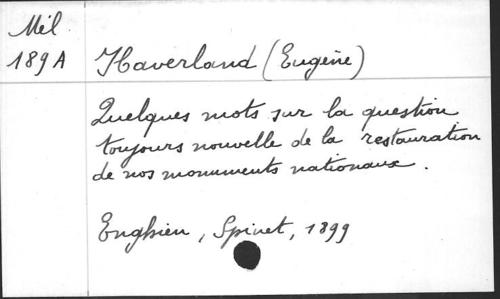 Mél
189A Haverland (Eugène)
Quelques mots sur la question
toujours nouvelle de la restauration
de nos monuments nationaux.
Enghien, Spinet, 1899